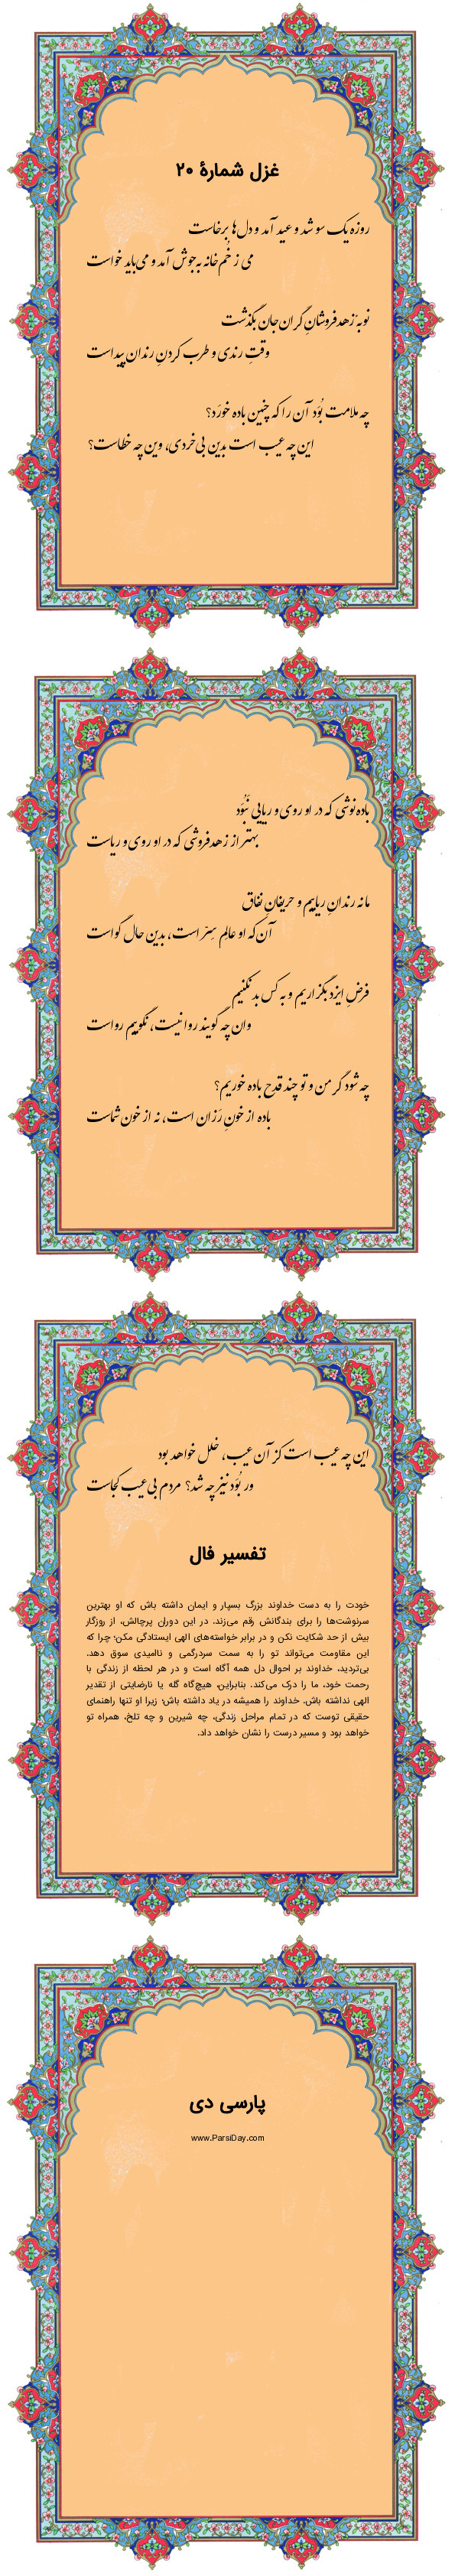 غزل شمارهٔ ۲۰
روزه یک سو شد و عید آمد و دل‌ها برخاست
می ز خُم‌خانه به جوش آمد و می باید خواست
نوبهٔ زهدفروشانِ گران‌جان بگذشت
وقتِ رندی و طرب کردنِ رندان پیداست
چه ملامت بُوَد آن را که چنین باده خورَد؟
این چه عیب است بدین بی‌خردی، وین چه خطاست؟
باده‌نوشی که در او روی و ریایی نَبُوَد
بهتر از زهدفروشی که در او روی و ریاست
ما نه رندانِ ریاییم و حریفانِ نفاق
آن که او عالِمِ سِرّ است، بدین حال گواست
فرضِ ایزد بگزاریم و به کس بد نکنیم
وان چه گویند روا نیست، نگوییم رواست
چه شود گر من و تو چند قدح باده خوریم؟
باده از خونِ رَزان است، نه از خون شماست
این چه عیب است کز آن عیب، خلل خواهد بود
ور بُوَد نیز چه شد؟ مردم بی‌عیب کجاست
تفسیر فال
خودت را به دست خداوند بزرگ بسپار و ایمان داشته باش که او بهترین
سرنوشت‌ها را برای بندگانش رقم می‌زند. در این دوران پرچالش، از روزگار
بیش از حد شکایت نکن و در برابر خواسته‌های الهی ایستادگی مکن؛ چرا که
این مقاومت می‌تواند تو را به سمت سردرگمی و ناامیدی سوق دهد.
بی‌تردید، خداوند بر احوال دل همه آگاه است و در هر لحظه از زندگی با
رحمت خود، ما را درک می‌کند. بنابراین، هیچ‌گاه گله یا نارضایتی از تقدیر
الهی نداشته باش. خداوند را همیشه در یاد داشته باش؛ زیرا او تنها راهنمای
حقیقی توست که در تمام مراحل زندگی، چه شیرین و چه تلخ، همراه تو
خواهد بود و مسیر درست را نشان خواهد داد.
پارسی دی
www.ParsiDay.com